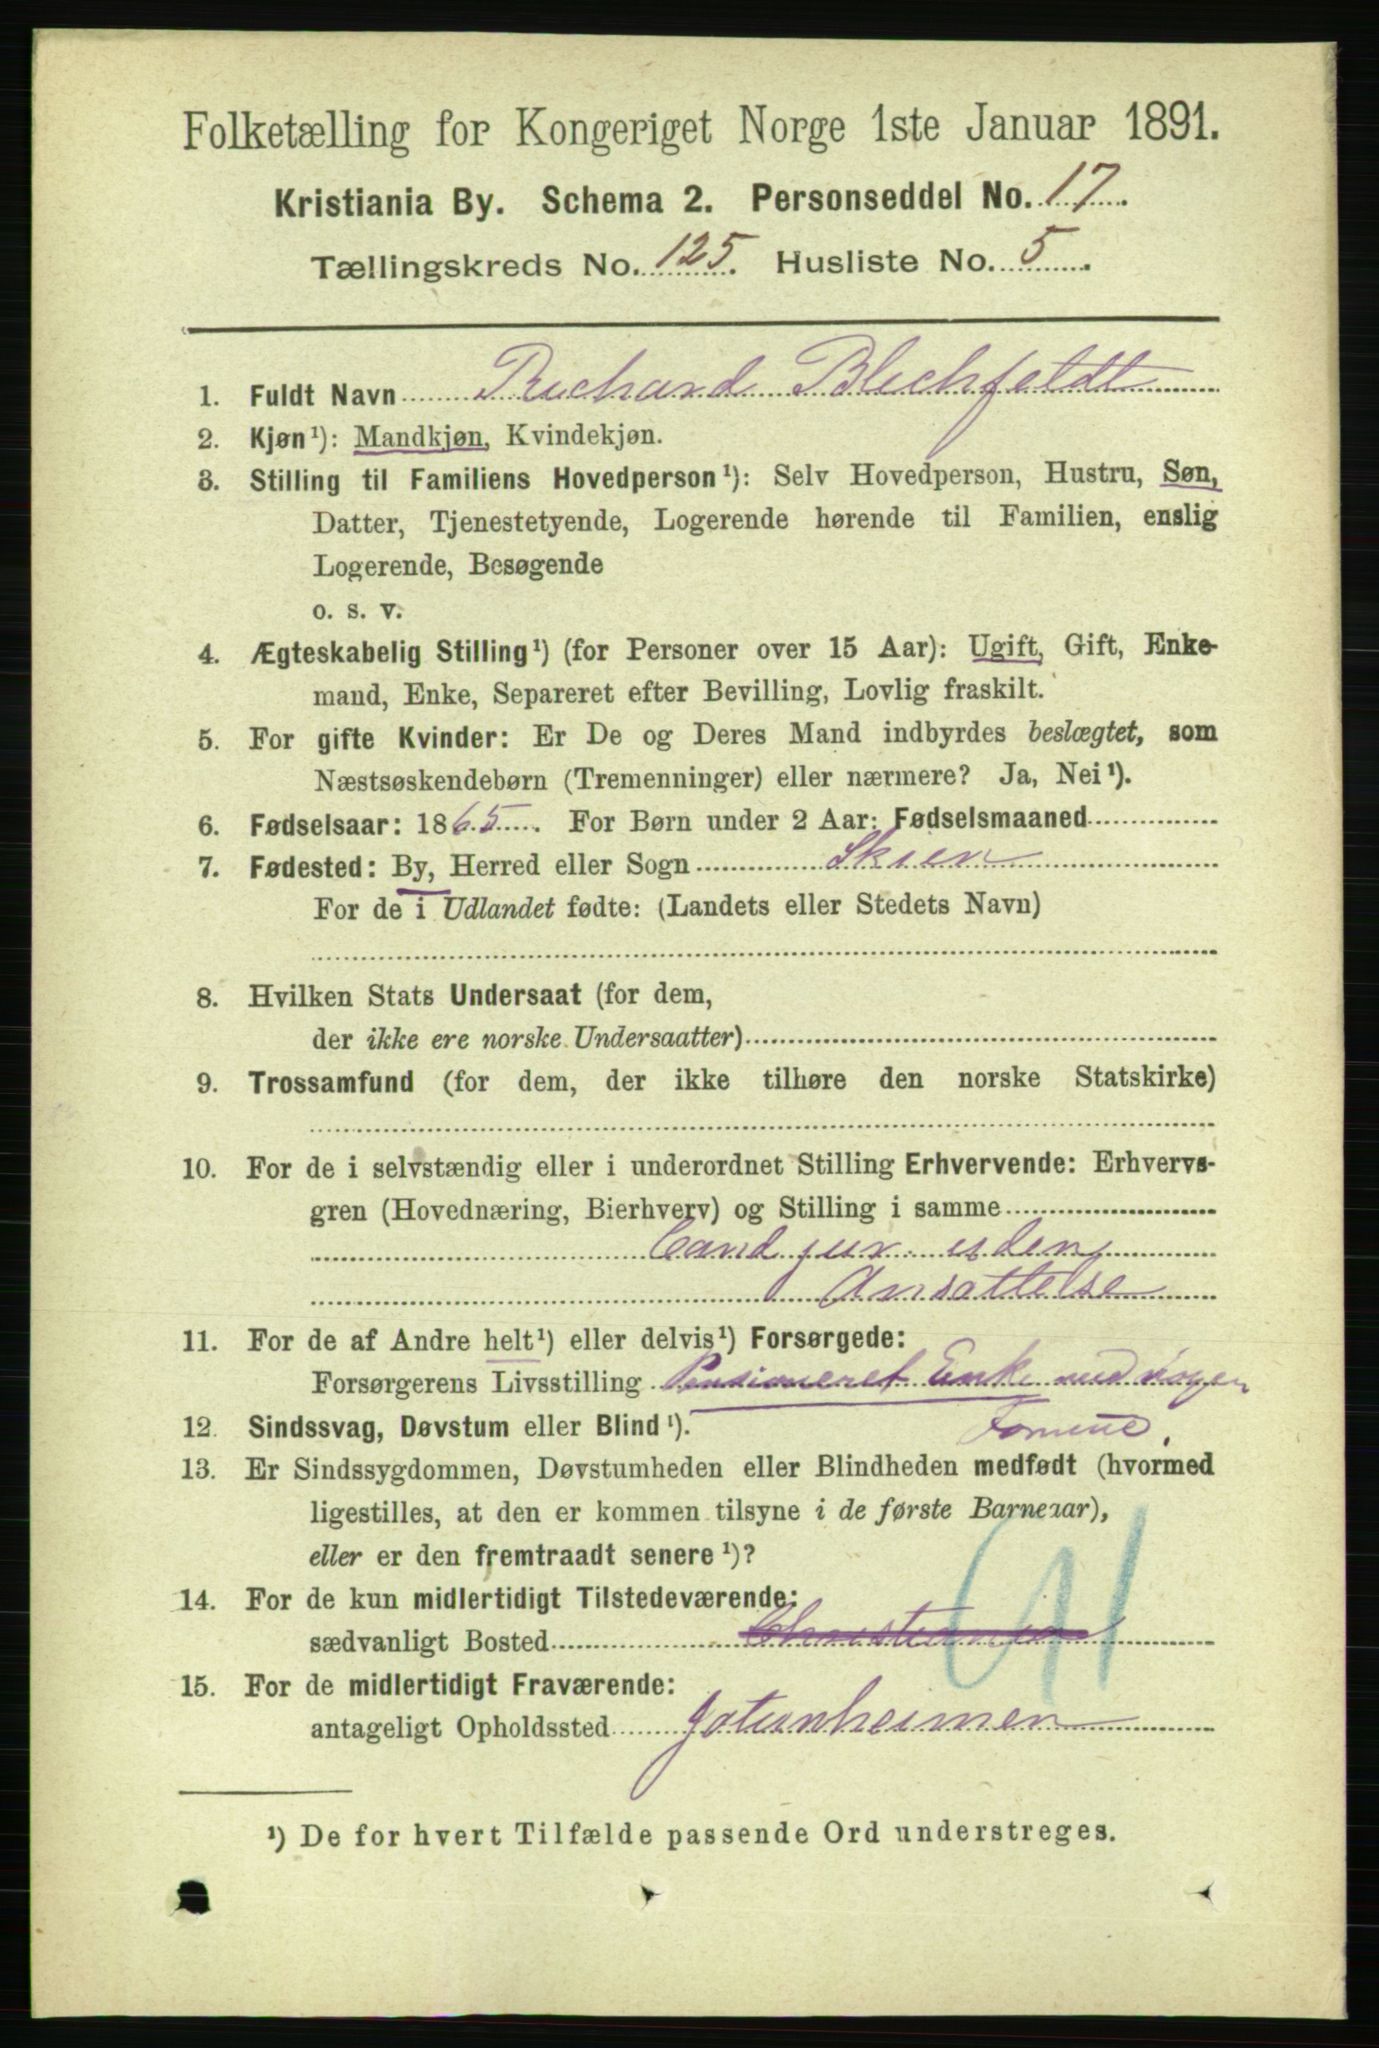 Folketælling for Kongeriget Norge 1ste Januar 1891.
Kristiania By. Schema 2. Personseddel No. 17.
Tællingskreds No. 125. Husliste No. 5.
1. Fuldt Navn Richard Blichfeldt
2. Kjøn¹): Mandkjøn, Kvindekjøn.
3. Stilling til Familiens Hovedperson¹): Selv Hovedperson, Hustru, Søn,
Datter, Tjenestetyende, Logerende hørende til Familien, enslig
Logerende, Besøgende
o. s. v.
4. Ægteskabelig Stilling¹) (for Personer over 15 Aar): Ugift, Gift, Enke-
mand, Enke, Separeret efter Bevilling, Lovlig fraskilt.
5. For gifte Kvinder: Er De og Deres Mand indbyrdes beslægtet, som
Næstsøskendebørn (Tremenninger) eller nærmere? Ja, Nei¹).
6. Fødselsaar: 1865. For Børn under 2 Aar: Fødselsmaaned
7. Fødested: By, Herred eller Sogn Skien
For de i Udlandet fødte: (Landets eller Stedets Navn)
8. Hvilken Stats Undersaat (for dem,
der ikke ere norske Undersaatter)
9. Trossamfund (for dem, der ikke tilhøre den norske Statskirke)
10. For de i selvstændig eller i underordnet Stilling Erhvervende: Erhvervs-
gren (Hovednæring, Bierhverv) og Stilling i samme
Cand jur. uden
Ansættelse
11. For de af Andre helt¹) eller delvis¹) Forsørgede:
Forsørgerens Livsstilling Pensioneret Enke med nogen
Formue.
12. Sindssvag, Døvstum eller Blind¹).
13. Er Sindssygdommen, Døvstumheden eller Blindheden medfødt (hvormed
ligestilles, at den er kommen tilsyne i de første Barneaar),
eller er den fremtraadt senere¹)?
14. For de kun midlertidigt Tilstedeværende:
sædvanligt Bosted Christiania
15. For de midlertidigt Fraværende:
antageligt Opholdssted Jotunheimen
¹) De for hvert Tilfælde passende Ord understreges.